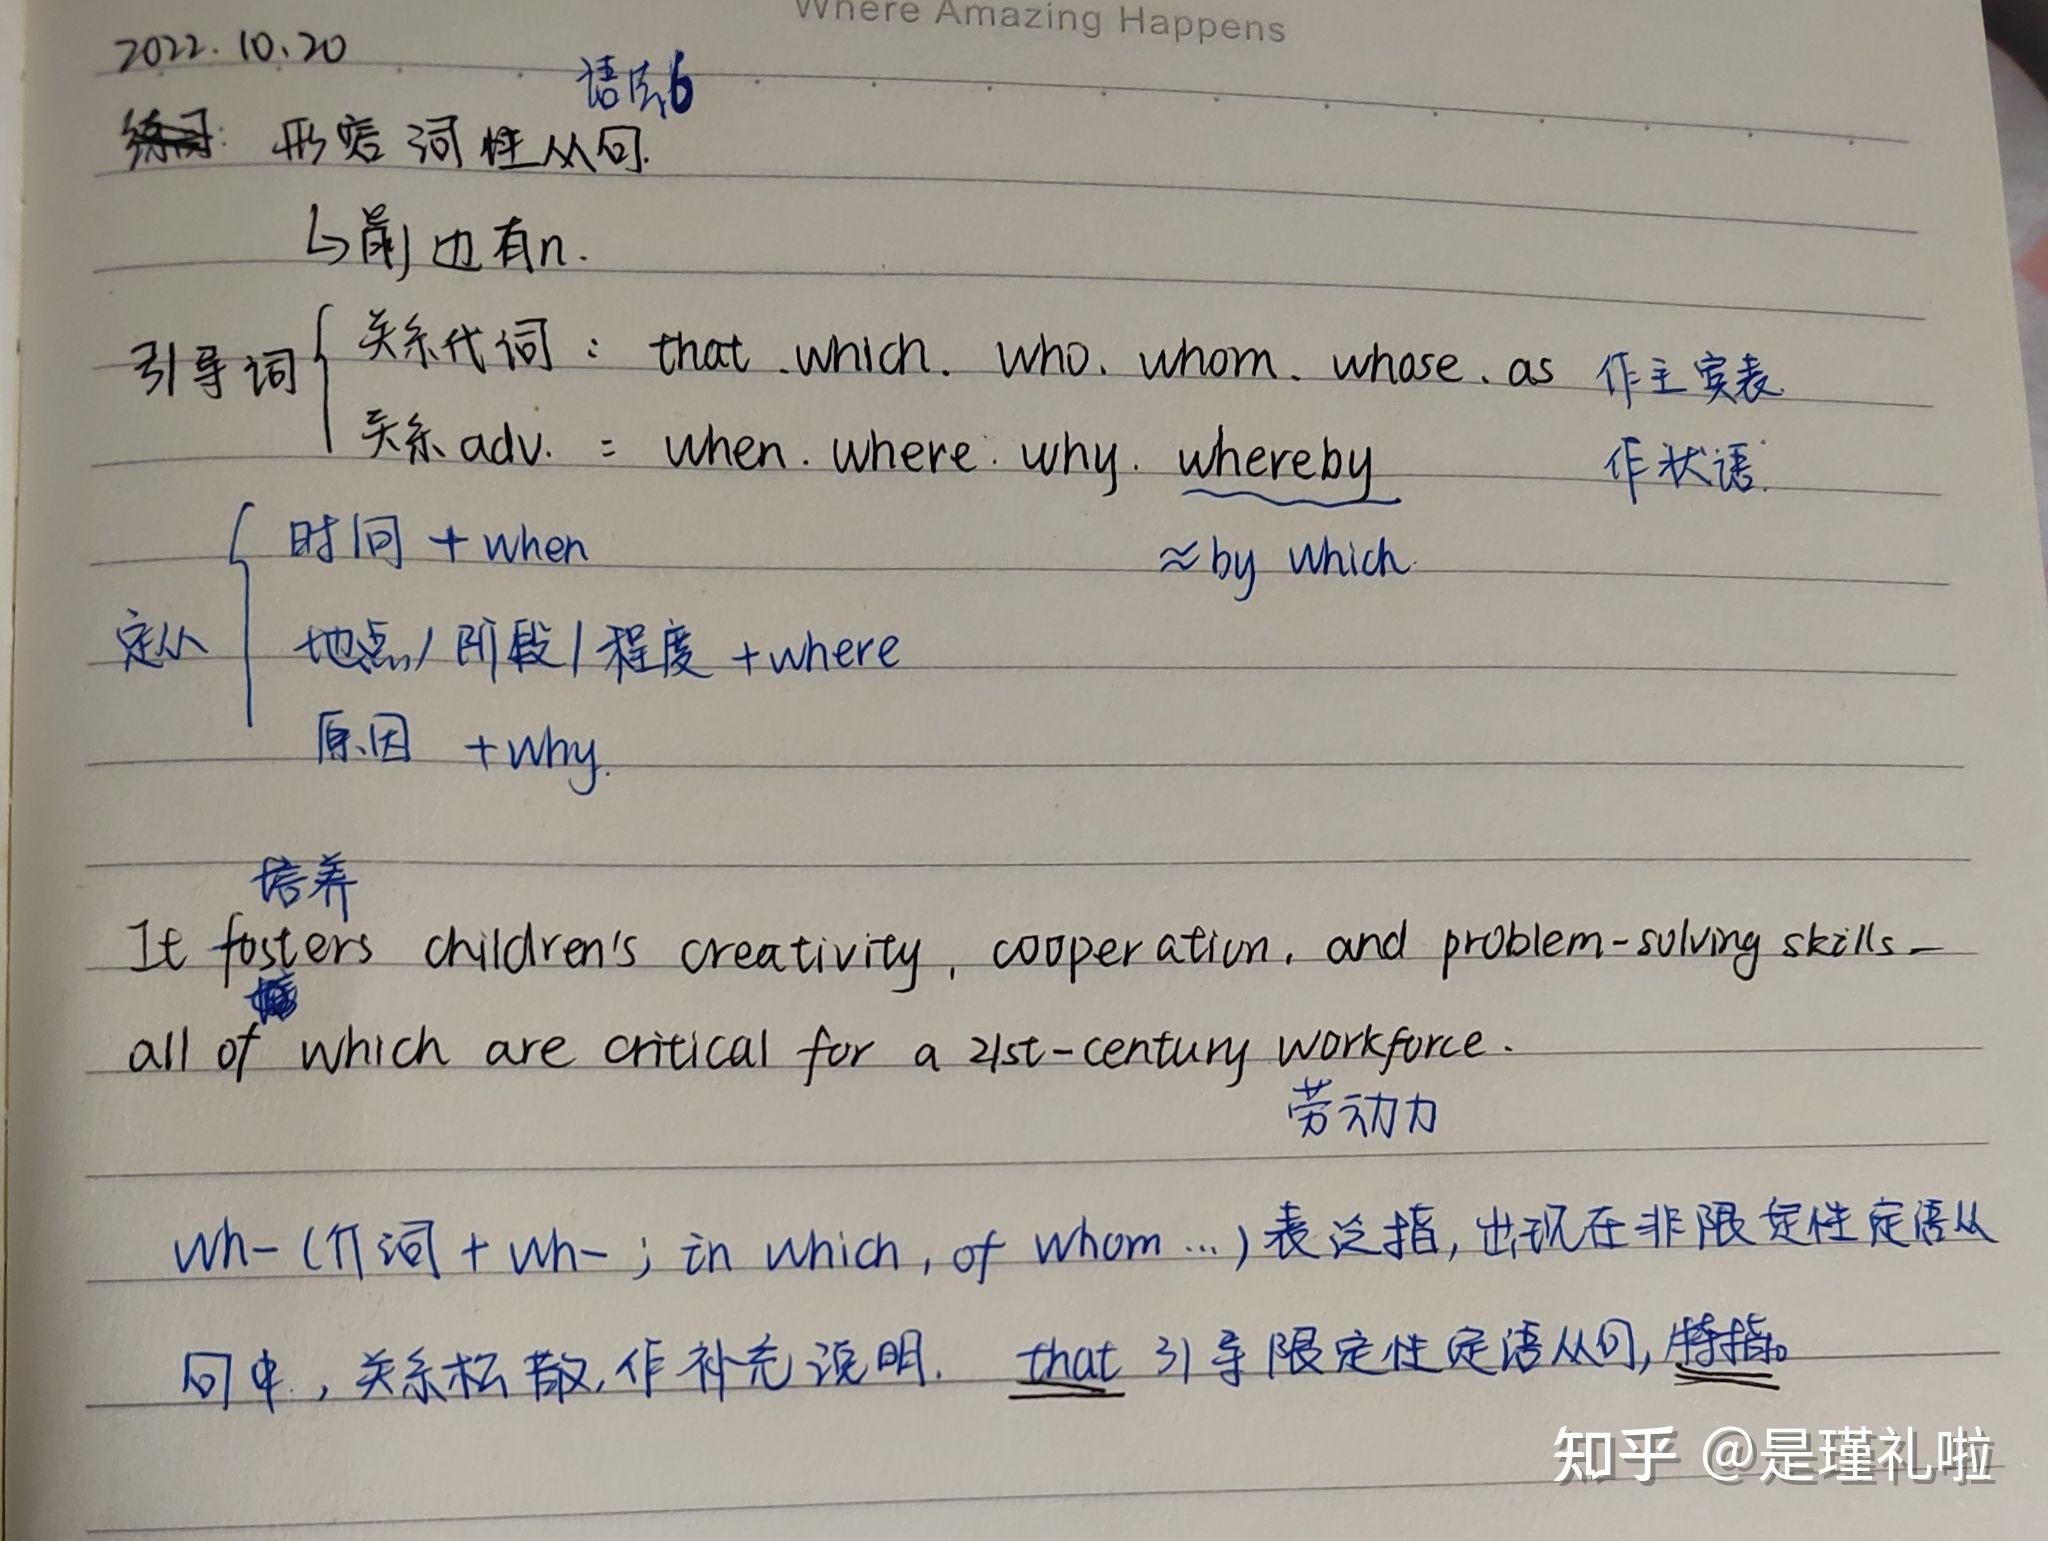 Where Amazing Happens
2022.10.20
语法6
练习: 形容词性从句.
↳前边有n.
引导词 { 关系代词: that.which. who. whom. whose. as 作主宾表.
关系adv. : when. where. why. whereby 作状语.
≈by which.
定从 { 时间 + when
地点/阶段/程度 +where
原因 +why.
培养
It fosters children's creativity, cooperation, and problem-solving skills—
all of which are critical for a 21st-century workforce.
劳动力
wh-(介词+wh-; in which, of whom...)表泛指,出现在非限定性定语从
句中,关系松散,作补充说明. that 引导限定性定语从句,特指。
知乎 @是瑾礼啦